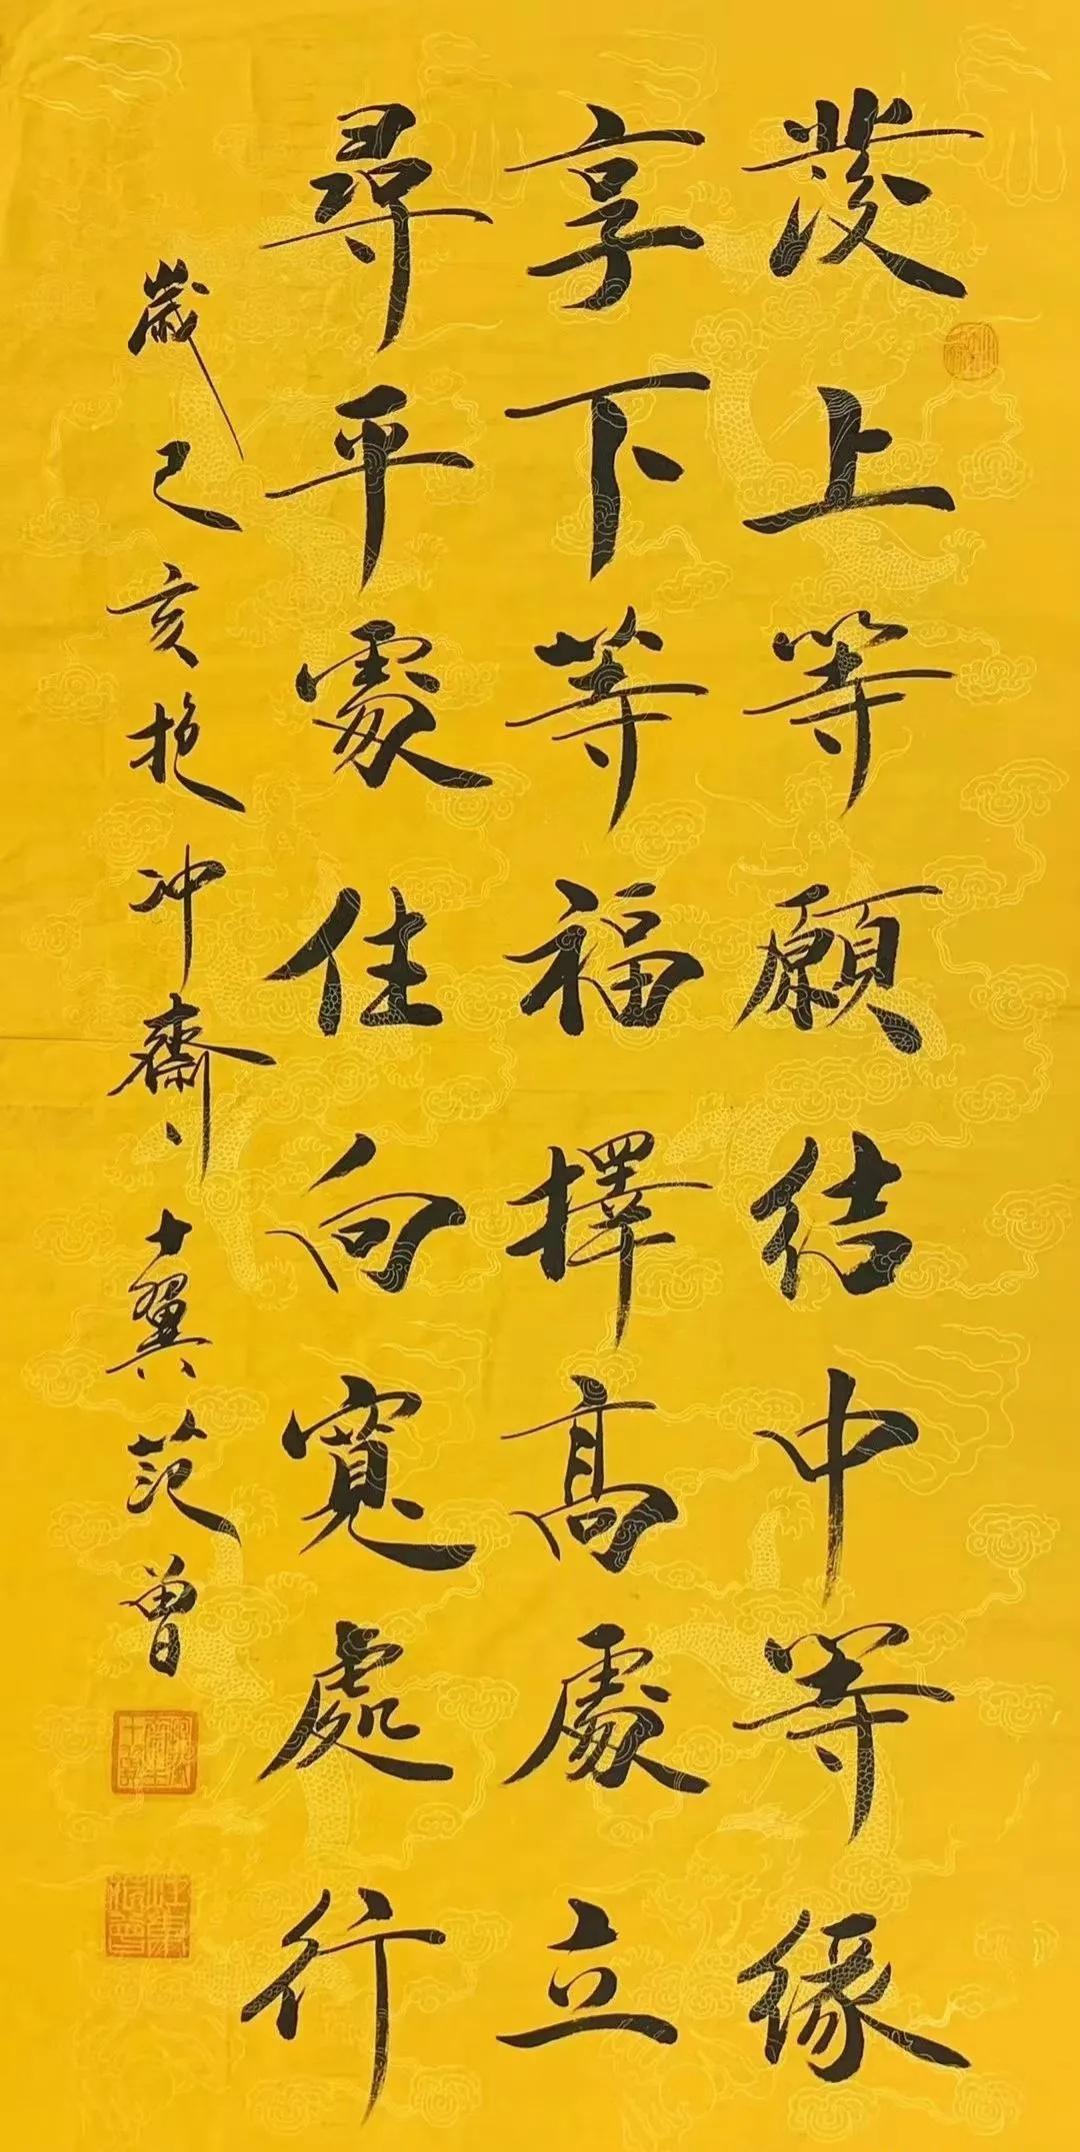 發上等願結中等緣
享下等福擇高處立
尋平處住向寬處行
歲己亥抱冲齋十翼范曾